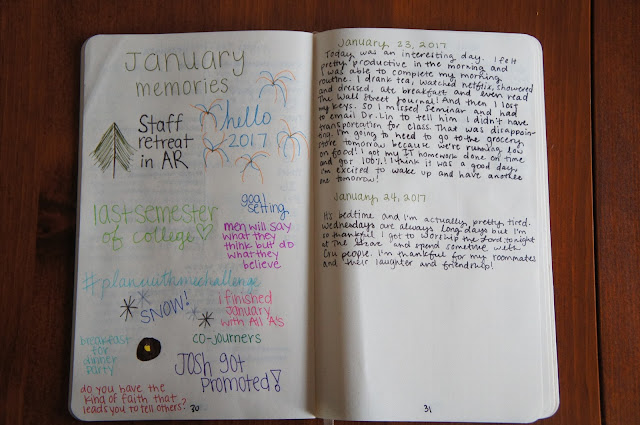 January
memories
Staff
retreat
in AR
hello
2017
last semester
of college
goal
setting
men will say
what they
think but do
what they
believe
#planwithmechallenge
SNOW!
i finished
January
with All A's
co-journers
breakfast
for
dinner
party
JOSH got
promoted!
do you have the
kind of faith that
leads you to tell others?
30
January, 23, 2017
Today was an interesting day. I felt
pretty productive in the morning and
I was able to complete my morning
routine. I drank tea, watched netflix, showered
and dressed, ate breakfast and even read
The Wall Street Journal! And then I lost
my keys. So I missed seminar and had
to email Dr. Lin to tell him I didn't have
transportation for class. That was disappoin-
ting. I'm going to need to go to the grocery
store tomorrow because we're running low
on food! I got my IT homework done on time
and got 100%! I think it was a good day,
i'm excited to wake up and have another
one tomorrow!
January, 24, 2017
It's bedtime and I'm actually pretty tired.
Wednesdays are always long days but I'm
so thankful I got to worship the Lord tonight
at The Grove and spend sometime with
Cru people. I'm thankful for my roommates
and their laughter and friendship!
31